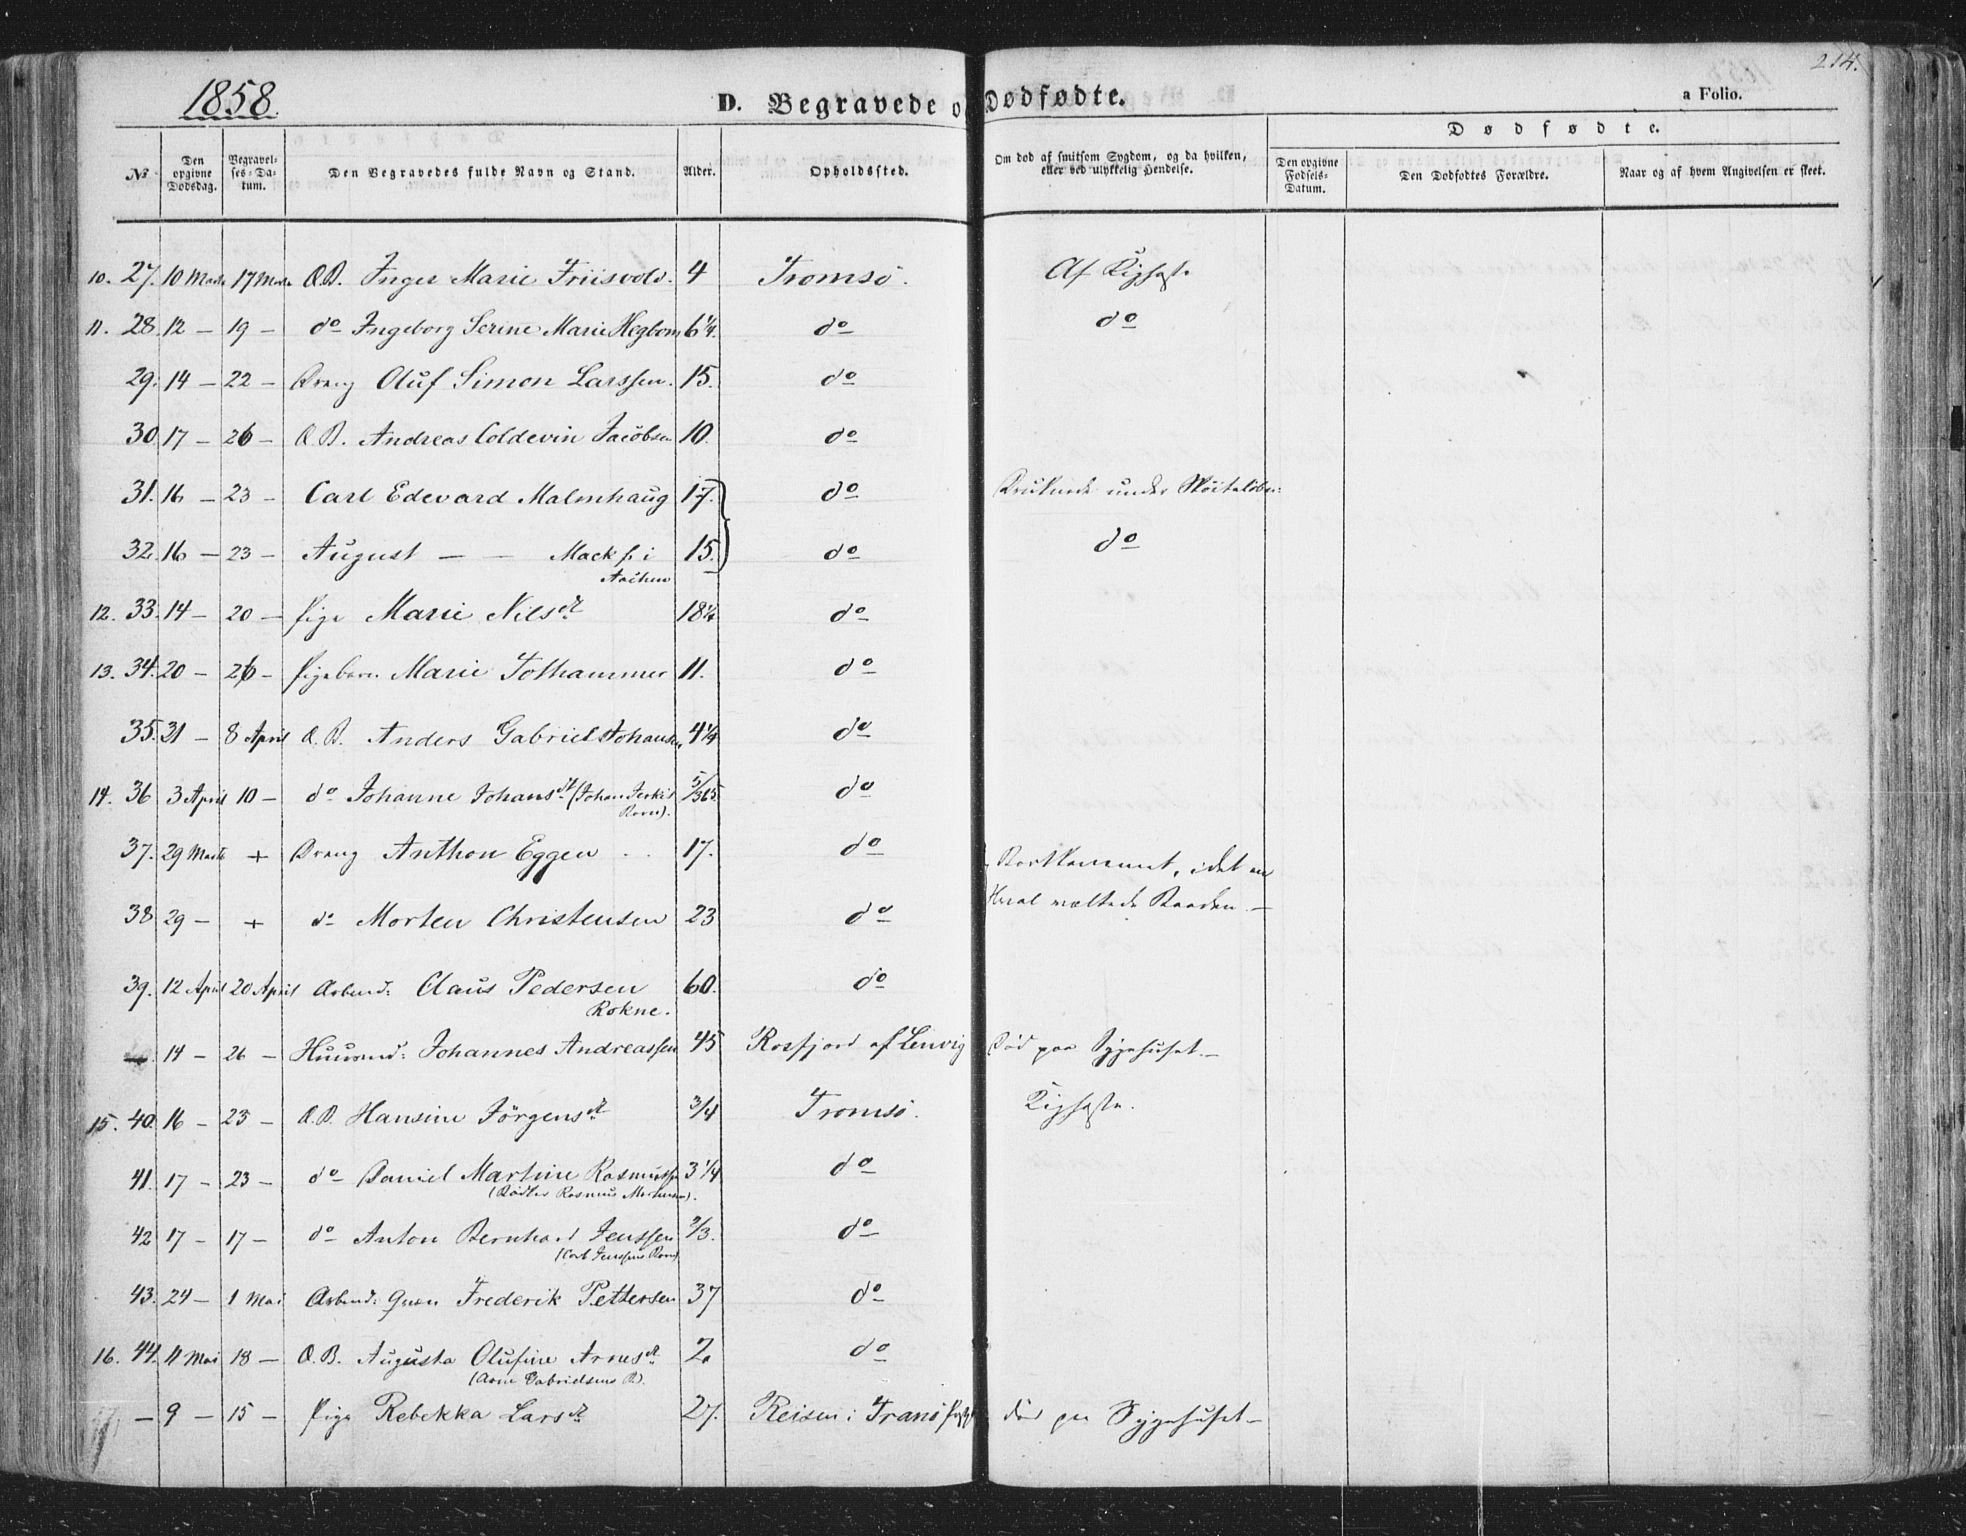 214.
1858.
D. Begravede og Dødfødte.
a Folio.
Dødfødte.
No
Den opgivne Dødsdag.
Begravel-ses-Da-tum.
Den Begravedes fulde Navn og Stand.
Alder.
Opholdssted.
Om død af smitsom Sygdom, og da hvilken, eller ved ulykkelig Hendelse.
Den opgivne Fødsels-Datum.
Den Dødfødtes Forældre.
Naar og af hvem Angivelsen er skeet.
10. 27. 10 Marts 17 Marts Æ.B. Inger Marie Friisvold. 4 Tromsø. Af Kighoste
11. 28. 12 — 19 — do Ingeborg Serine Marie Hegbom 6 1/4. do do
29. 14 — 22 — Dreng Oluf Simon Larssen. 15. do
30 17 — 26 — Æ.B. Andreas Coldevin Jacobsen 10. do
31. 16 — 23 — Carl Edevard Malmhaug 17. do Druknede under Skøiteløben:
32. 16 — 23 — August — — Mack f. i Aachen 15. do do
12. 33. 14 — 20 — Pige Marie Nilsdt 18 1/4 do
13. 34. 20 — 26 — Pigebarn Marie Tothammer 11. do
35. 31 — 8 April Æ.B. Anders Gabriel Johansen 4 1/4 do
14. 36 3 April 10 — do Johanne Johansdt (Johan Barn). 5/365. do
37. 29 Marts + Dreng Anthon Eggen 17. do Bortkommet, idet en
38 29 — + do Morten Christensen 23 do Hval væltede Baaden. —
39. 12 April 20 April Arbmd: Claus Pedersen Rokne. 60. do
14 — 26 — Huusmd: Johannes Andreassen 45 Rosfjord af Lenvig Død paa Sygehuset. —
15. 40. 16 — 23 — Æ.B. Hansine Jörgensdt 3/4 Tromsø. Kighoste.
41. 17 — 23 — do Daniel Martine Rasmussen (Bødker Rasmus). 3 1/4 do
42 17 — 17 — do Anton Bernhard Jenssen (Carl Jenssens Barn) 2/3. do
43. 24 — 1 Mai Arbmd: Frederik Pettersen 37 do
16. 44. 11 Mai 18 — Æ.B. Augusta Olufine Arnesdt (Arne Gabrielsens B). 2. do
— 9 — 15 — Pige Rebekka Larsdt 27. Reisen i Tranø død paa Sygehuset —